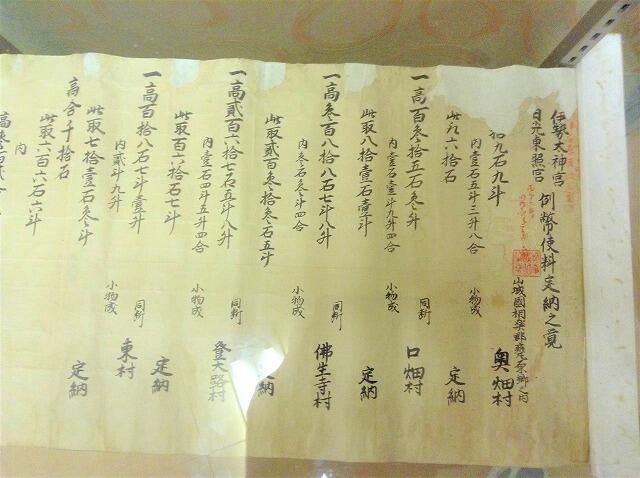 伊勢大神宮
日光東照宮 例幣使料定納之覚
山城國相楽郡瓶原郷之内
九石九斗 奥畑村
内壹石五斗三升八合 小物成
此取六拾石 定納
一高百叁拾五石叁斗 同断 口畑村
内壹石壹斗九升四合 小物成
此取八拾壹石壹斗 定納
一高叁百八拾八石七斗八升 同断 佛生寺村
内叁石叁斗四合 小物成
此取貳百叁拾叁石五斗 定納
一高貳百六拾七石五斗八升 同断 登大路村
内壹石四斗五升四合 小物成
此取百六拾石七斗 定納
一高百拾八石七斗壹升 同断 東村
内貳斗九升 小物成
此取七拾壹石叁斗 定納
高合千拾石
此取六百六石六斗
内